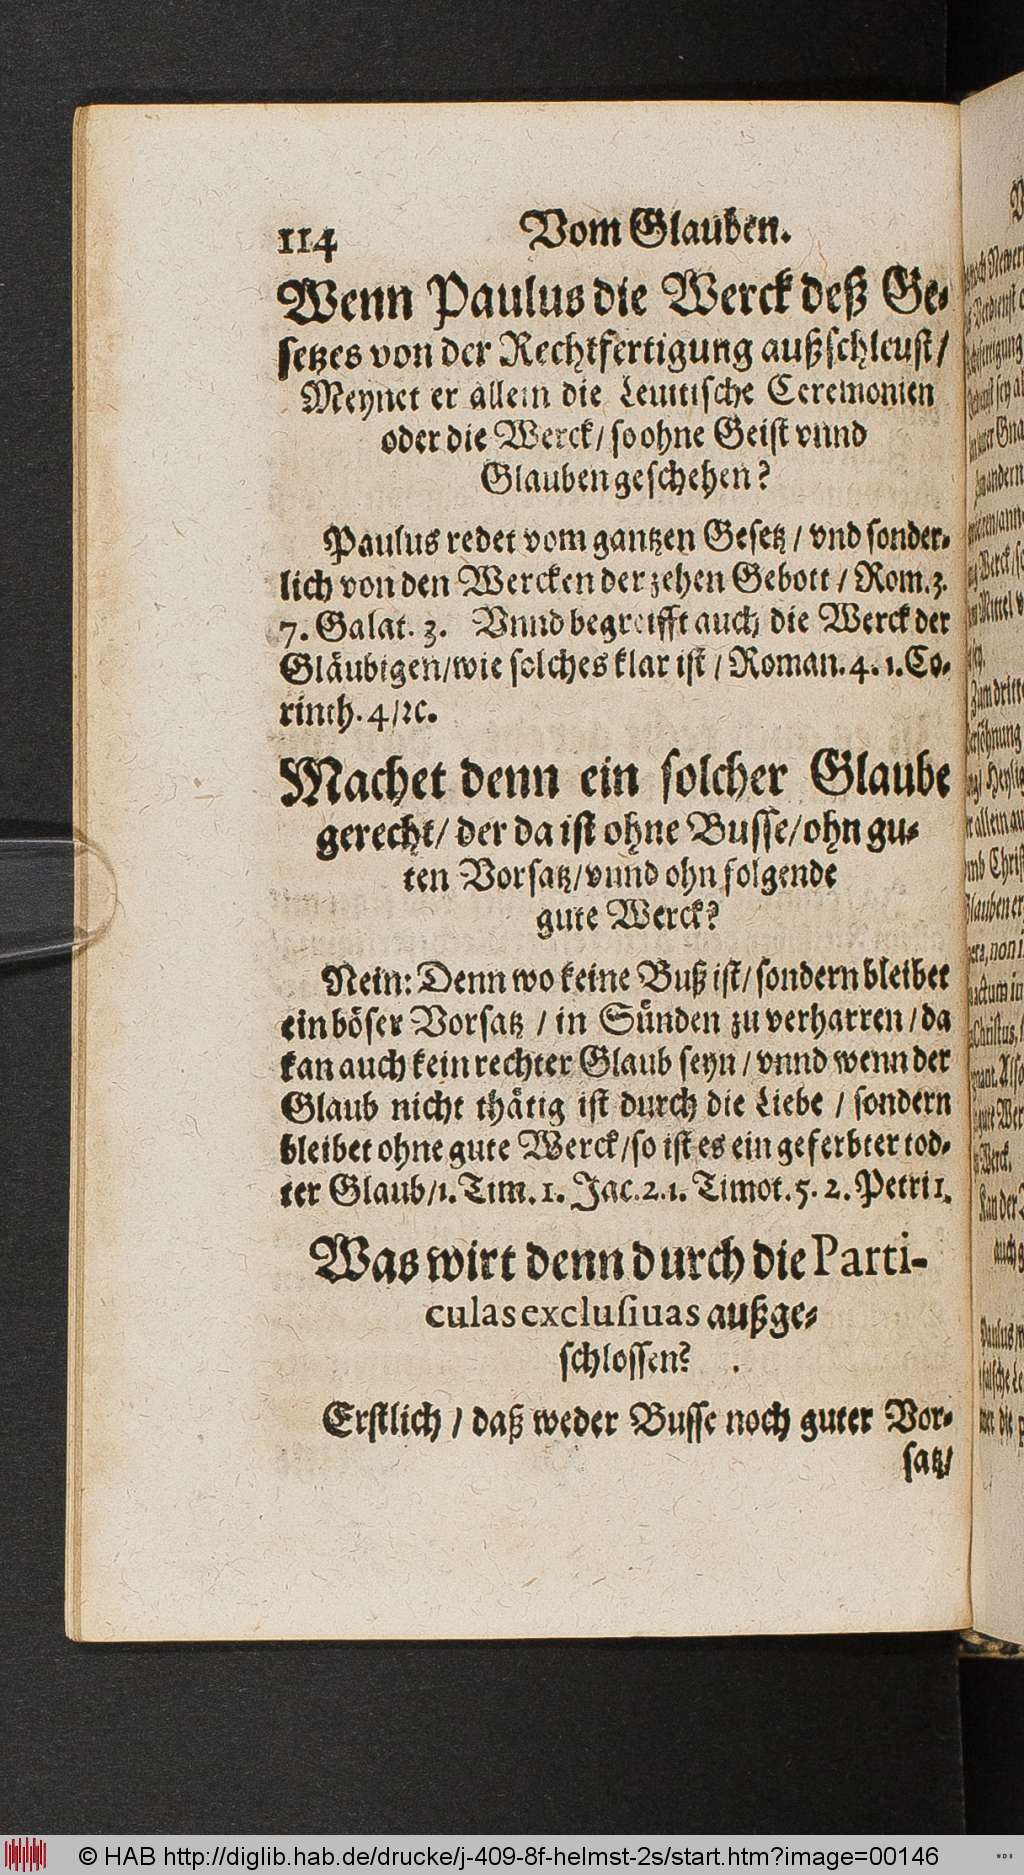 114 Vom Glauben.
Wenn Paulus die Werck deß Ge-
setzes von der Rechtfertigung außschleust/
Meynet er allein die Leuitische Ceremonien
oder die Werck/ so ohne Geist vnnd
Glauben geschehen?
Paulus redet vom gantzen Gesetz / vnd sonder-
lich von den Wercken der zehen Gebott / Rom. 3.
7. Galat. 3. Vnnd begreifft auch die Werck der
Gläubigen/ wie solches klar ist / Roman. 4. 1. Co-
rinth. 4/ ꝛc.
Machet denn ein solcher Glaube
gerecht/ der da ist ohne Busse/ ohn gu-
ten Vorsatz/ vnnd ohn folgende
gute Werck?
Nein: Denn wo keine Buß ist/ sondern bleibet
ein böser Vorsatz / in Sünden zu verharren / da
kan auch kein rechter Glaub seyn / vnnd wenn der
Glaub nicht thätig ist durch die Liebe / sondern
bleibet ohne gute Werck/ so ist es ein geferbter tod-
ter Glaub/ 1. Tim. 1. Jac. 2. 1. Timot. 5. 2. Petri 1.
Was wirt denn durch die Parti-
culas exclusiuas außge-
schlossen?
Erstlich / daß weder Busse noch guter Vor-
satz/
© HAB http://diglib.hab.de/drucke/j-409-8f-helmst-2s/start.htm?image=00146